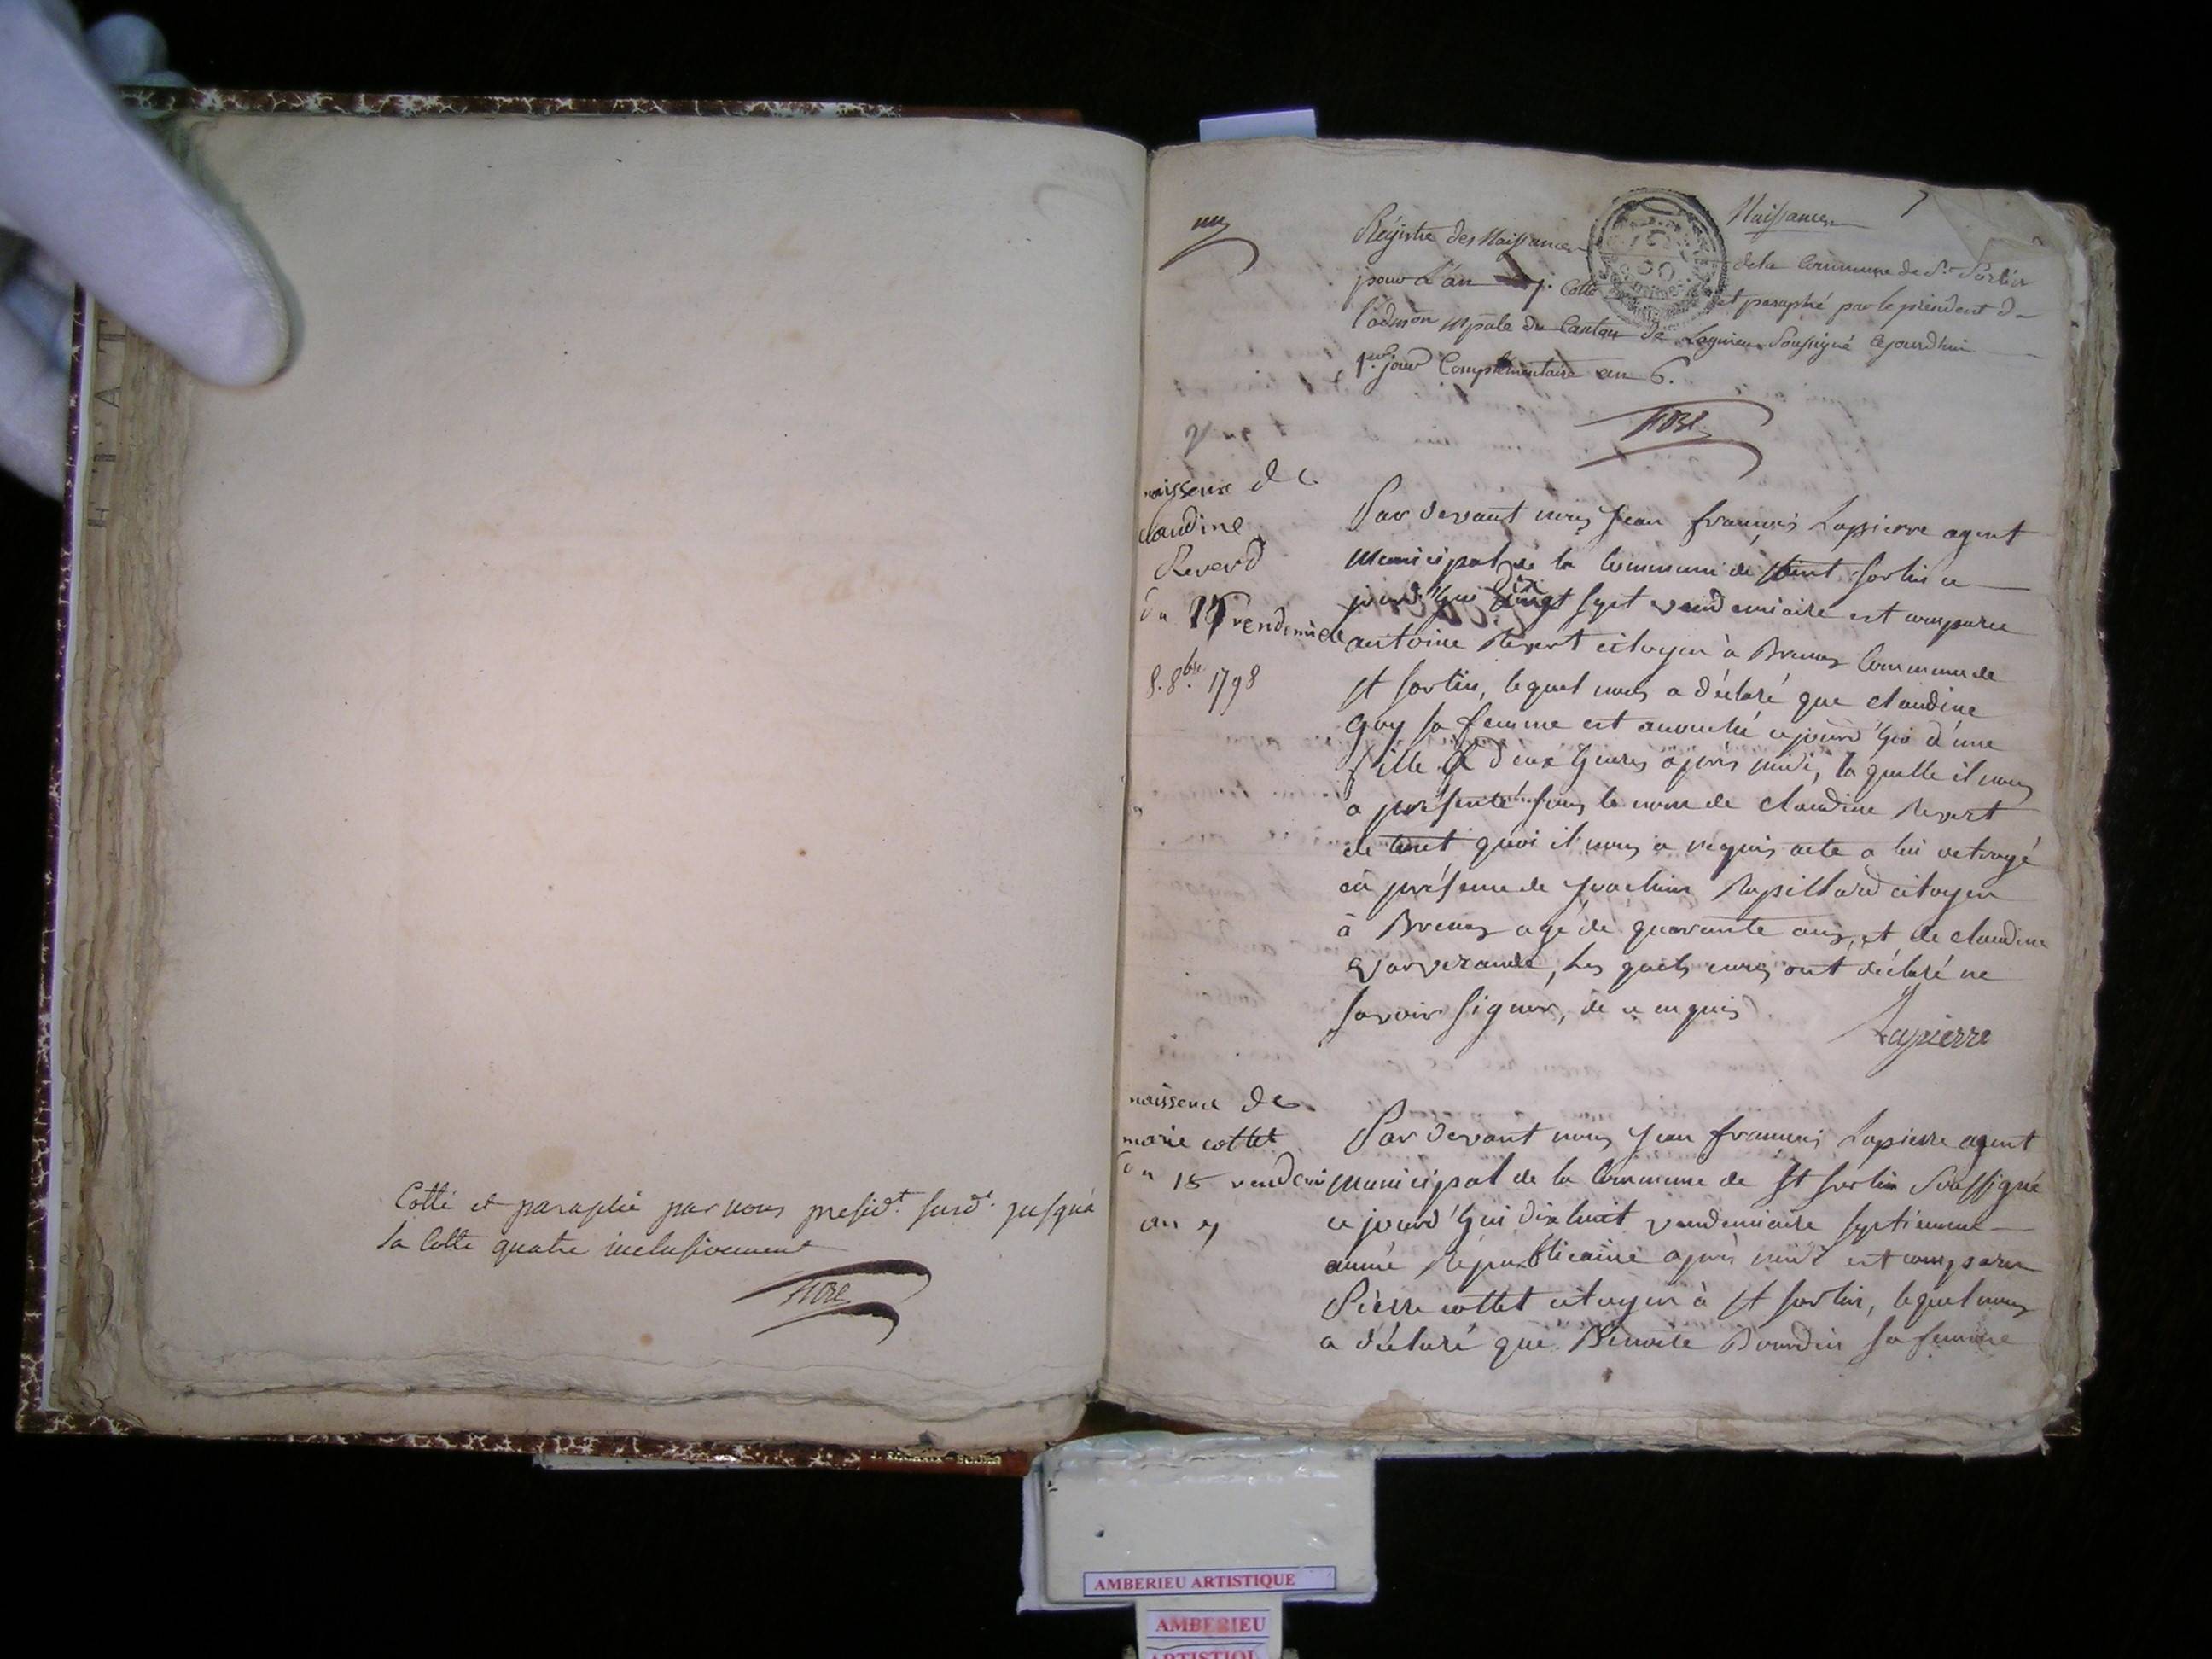 Cotté et paraphé par nous presidt. susdt. jusqua
la Cotte quatre inclusivement
Naissances
Régistre des Naissances de la Commune de St. Sorlin
pour L'an 7. Cotté et paraphé par le président de
l'admon mpale du Canton de Lagnieu Soussigné cejourdhuin
1er. jour Complémentaire an 6.
naissence de
claudine
Reverd
du 17 vendemiere
8. 8bre 1798
Par devant nous Jean francois Lapierre agent
municipal de la commune de saint sorlin ce
jourd'hui dix sept vendemiaire est comparu
antoine Revert citoyen à Brenaz Commune de
st sorlin, lequel nous a déclaré que claudine
guy sa femme est accouché cejourd'hui d'une
fille a deux heures après midi, la quelle il nous
a présenté sous le nom de claudine Revert
de tout quoi il nous a requis acte a lui octroyé
en présence de Joachim Rapillard citoyen
à Brenaz agé de quarante ans, et de claudine
les quels nous ont déclaré ne
savoir signer, de ce enquis
Lapierre
naissence de
marie cottet
du 18 vendem
an 7
Par devant nous Jean francois Lapierre agent
municipal de la Commune de st sorlin Soussigné
ce jourd'hui dix huit vendemiaire septieme
année Républicaine après midi est comparu
Pierre cottet citoyen à st sorlin, lequel nous
a déclaré que Benoite Bourdin sa femme
AMBERIEU ARTISTIQUE
AMBERIEU